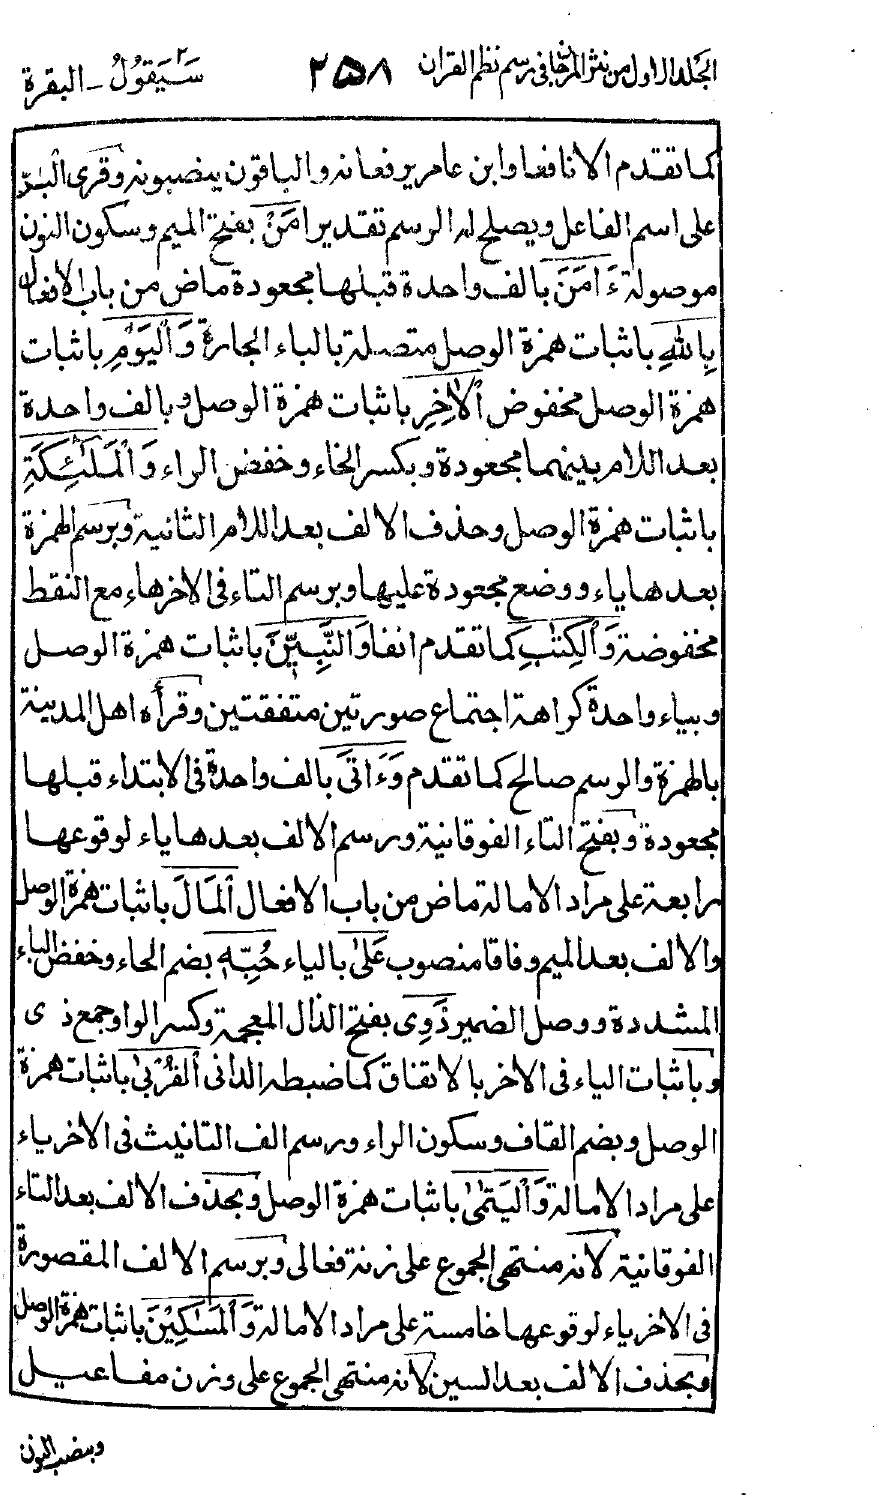 الجلد الاول من نثر المرجان فى رسم نظم القران ٢٥٨ سَيَقُولُ ٢ - البقرة
كما تقدم الا نافعا وابن عامر يرفعانه والباقون ينصبونه وقرى الْبٰرّ
على اسم الفاعل ويصلح له الرسم تقديرا مَنْ بفتح الميم وسكون النون
موصولة ءَامَنَ بالف واحدة قبلها مجعودة ماض من باب الافعال
بِاللّٰهِ باثبات همزة الوصل متصلة بالباء الجارة وَالْيَوْمِ باثبات
همزة الوصل مخفوض الْاٰخِرِ باثبات همزة الوصل وبالف واحدة
بعد اللام بينهما مجعودة وبكسر الخاء وخفض الراء وَالْمَلٰٓئِكَةِ
باثبات همزة الوصل وحذف الالف بعد اللام الثانية وبرسم الهمزة
بعدها ياء ووضع مجعودة عليها وبرسم التاء فى الاخر هاء مع النقط
مخفوضة وَالْكِتٰبِ كما تقدم انفا وَالنَّبِيّٖنَ باثبات همزة الوصل
وبياء واحدة كراهة اجتماع صورتين متفقتين وقرأه اهل المدينة
بالهمزة والرسم صالح كما تقدم وَءَاتَى بالف واحدة فى الابتداء قبلها
مجعودة وبفتح التاء الفوقانية ورسم الالف بعدها ياء لوقوعها
رابعة على مراد الامالة ماض من باب الافعال الْمَالَ باثبات همزة الوصل
والالف بعد الميم وفاقا منصوب عَلٰى بالياء حُبِّهٖ بضم الحاء وخفض الباء
المشددة ووصل الضمير ذَوِى بفتح الذال المعجمة وكسر الواو جمع ذى
وباثبات الياء فى الاخر بالاتفاق كما ضبطه الدانى الْقُرْبٰى باثبات همزة
الوصل وبضم القاف وسكون الراء ورسم الف التانيث فى الاخر ياء
على مراد الامالة وَالْيَتٰمٰى باثبات همزة الوصل وبحذف الالف بعد التاء
الفوقانية لانه منتهى الجموع على زنة فعالى وبرسم الالف المقصورة
فى الاخر ياء لوقوعها خامسة على مراد الامالة وَالْمَسٰكِيْنَ باثبات همزة الوصل
وبحذف الالف بعد السين لانه منتهى الجموع على وزن مفاعيل
وبنصب النون